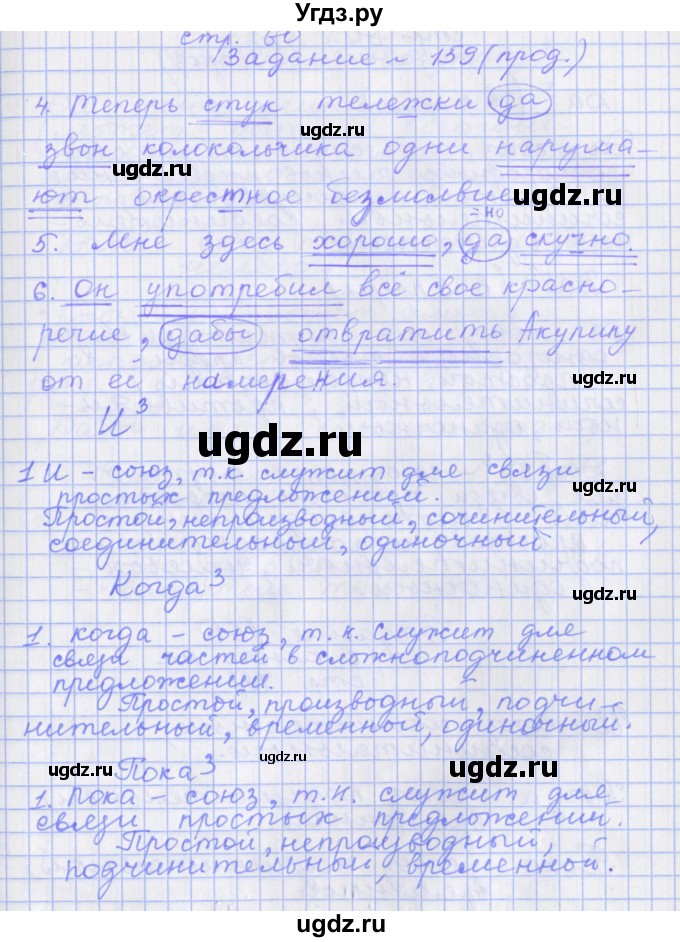 Угдз.ру
стр. 60
Задание ~ 159 (прод.)
4. Теперь стук тележки да
ugdz.ru
звон колокольчика одни наруша-
ugdz.ru
ют окрестное безмолвие.
ugdz.ru
= но
5. Мне здесь хорошо, да скучно.
6. Он употребил всё своё красно-
речие, дабы отвратить Акулину
от её намерения.
ugdz.ru
И³
ugdz.ru
1 И – союз, т.к. служит для связи
простых предложений.
Простой, непроизводный, сочинительный,
соединительный, одиночный
ugdz.ru
Когда³
1. Когда – союз, т.к. служит для
связи частей в сложноподчиненном
предложении.
Простой, производный, подчи-
нительный, временной, одиночный.
ugdz.ru ugdz.ru ugdz.ru
Пока³
1. Пока – союз, т.к. служит для
связи простых предложений.
Простой, непроизводный,
подчинительный, временной.
ugdz.ru